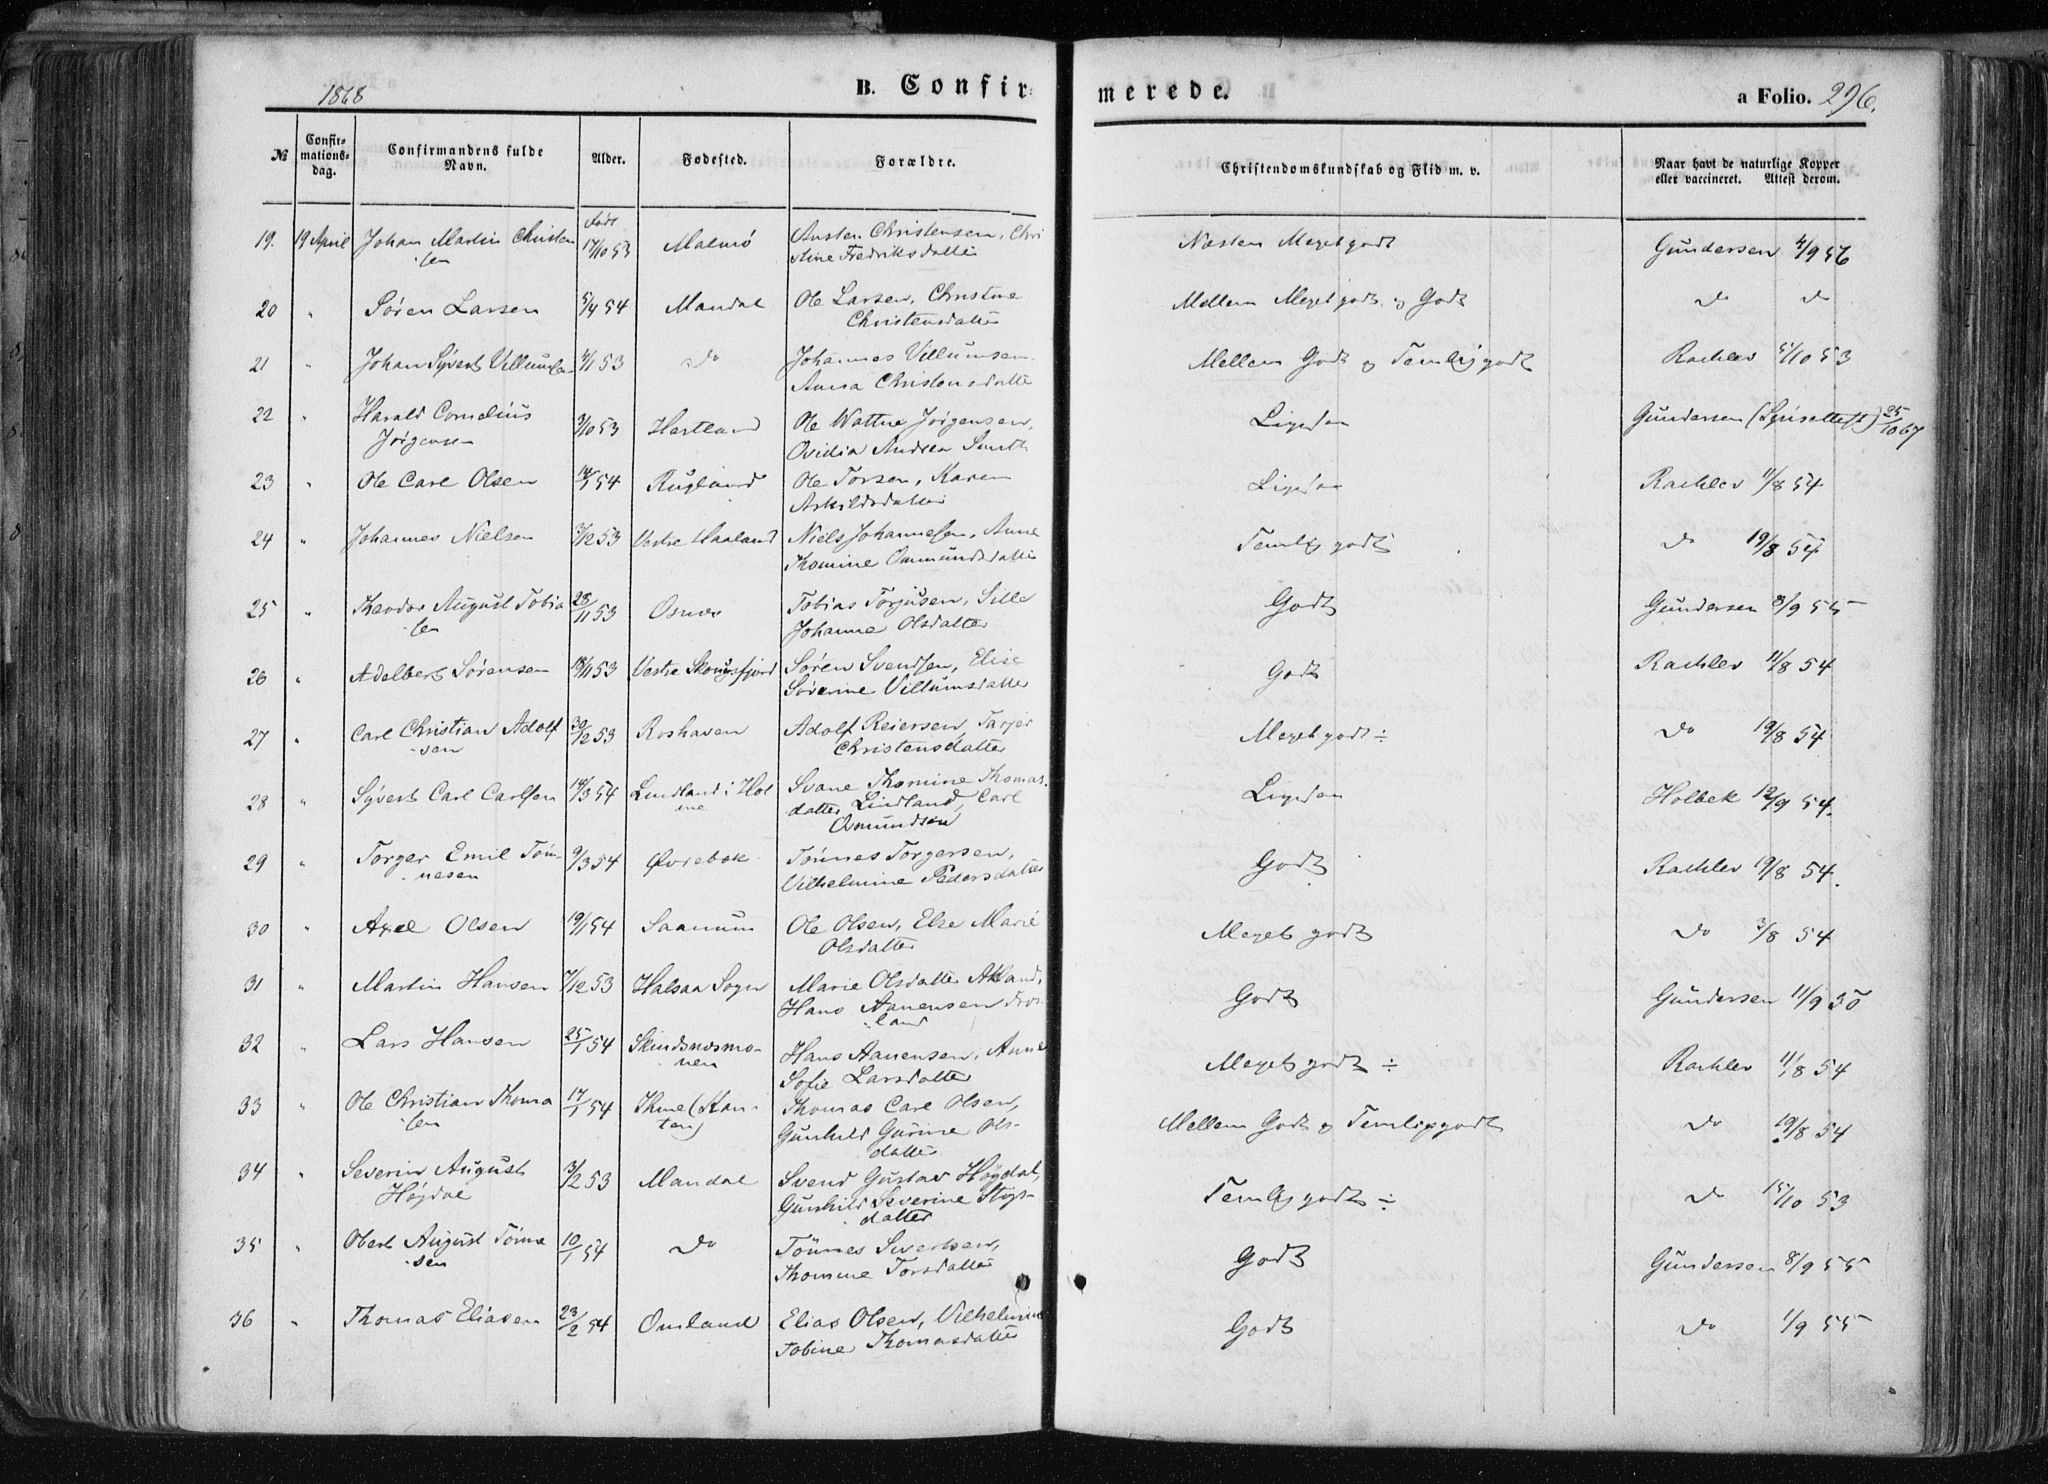 1868
B. Confir-
merede.
a Folio. 296.
№
Confir-
mations-
dag.
Confirmandens fulde
Navn.
Alder.
Fødested.
Forældre.
Christendomskundskab og Flid m. v.
Naar havt de naturlige Kopper
eller vaccineret. Attest derom.
19. 19 April Johan Martin Christen Født 17/10 53 Malmö Austen Christensen, Chri Næsten Meget godt Gundersen 4/9 56
sen stine Fredriksdatter
20 " Søren Larsen 5/4 54 Mandal Ole Larsen, Christine Mellem Meget godt og Godt do do
Christensdatter
21 " Johan Syvert Villumsen 4/1 53 do Johannes Villumsen Mellem Godt og Temlig godt Rachlev 5/10 53
Anna Christensdatter
22 " Harald Cornelius 3/10 53 Hestland Ole Wattne Jørgensen, Ligedan Gundersen 25/10 67
Jørgensen Ovidia Andrea Smith
23 " Ole Carl Olsen 14/1 54 Rugland Ole Torsen, Karen Ligedan Rachlev 11/8 54
Askildsdatter
24 " Johannes Nielsen 3/12 53 Vestre Haaland Niels Johannesen, Anne Temlig godt do 19/8 54
Thomine Ommundsdatter
25 " Theodor August Tobia 28/11 53 Osnes Tobias Torjusen, Sille Godt Gundersen 8/9 55
sen Johanne Olsdatter
26 " Adelbert Sørensen 18/11 53 Vestre Skongsfjord Søren Svendsen, Elise Godt Rachlev 11/8 54
Sørerine Villumsdatter
27 " Carl Christian Adolf 30/12 53 Roshaven Adolf Reiersen, Tarjer Meget godt ÷ do 19/8 54
sen Christensdatter
28 " Syvert Carl Carlsen 14/3 54 Lindland i Hol Svane Thomine Thomas Ligedan Holbek 12/9 54.
me datter Lindland, Carl
Osmundsen
29 " Torger Emil Tön- 9/3 54 Øvrebøk Tönnes Torgersen, Godt Rachlev 19/8 54.
nesen Vilhelmine Pedersdatter
30 " Axel Olsen 19/1 54 Saanum Ole Olsen, Else Marie Meget godt do 3/8 54
Olsdatter
31 " Martin Hansen 7/12 53 Halsaa Sogn Marie Olsdatter Akland, Godt Gundersen 11/9 50
Hans Aanensen Fros
land
32 " Lars Hansen 25/1 54 Skindsnæsmo- Hans Aanensen, Anne Meget godt ÷ Rachlev 11/8 54
nen Sofie Larsdatter
33 " Ole Christian Thoma 17/1 54 Ihme (Kan- Thomas Carl Olsen, Mellem Godt og Temlig godt do 19/8 54
sen ten) Gunhild Gurine Ols-
datter
34 " Severin August 3/2 53 Mandal Svend Gustav Høgdal, Temlig godt ÷ do 15/10 53
Høgdal Gunhild Severine Stigs-
datter
35 " Obert August Tönne 10/1 54 do Tönnes Sivertsen, Godt Gundersen 8/9 55
sen Thomine Torsdatter
36 " Thomas Eliasen 23/2 54 Omland Elias Olsen, Vilhelmine Godt do 1/9 55
Tobine Thomasdatter